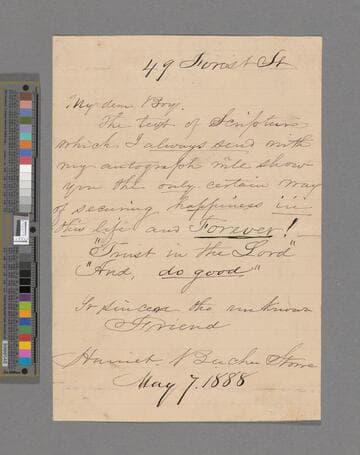 49 Forest St
My dear Boy.
The text of Scripture
which I always send with
my autograph will show
you the only certain way
of securing happiness in
this life and Forever!
"Trust in the Lord"
"And, do good"
So sincere the unknown
Friend
Harriet Beecher Stowe
May 7. 1888